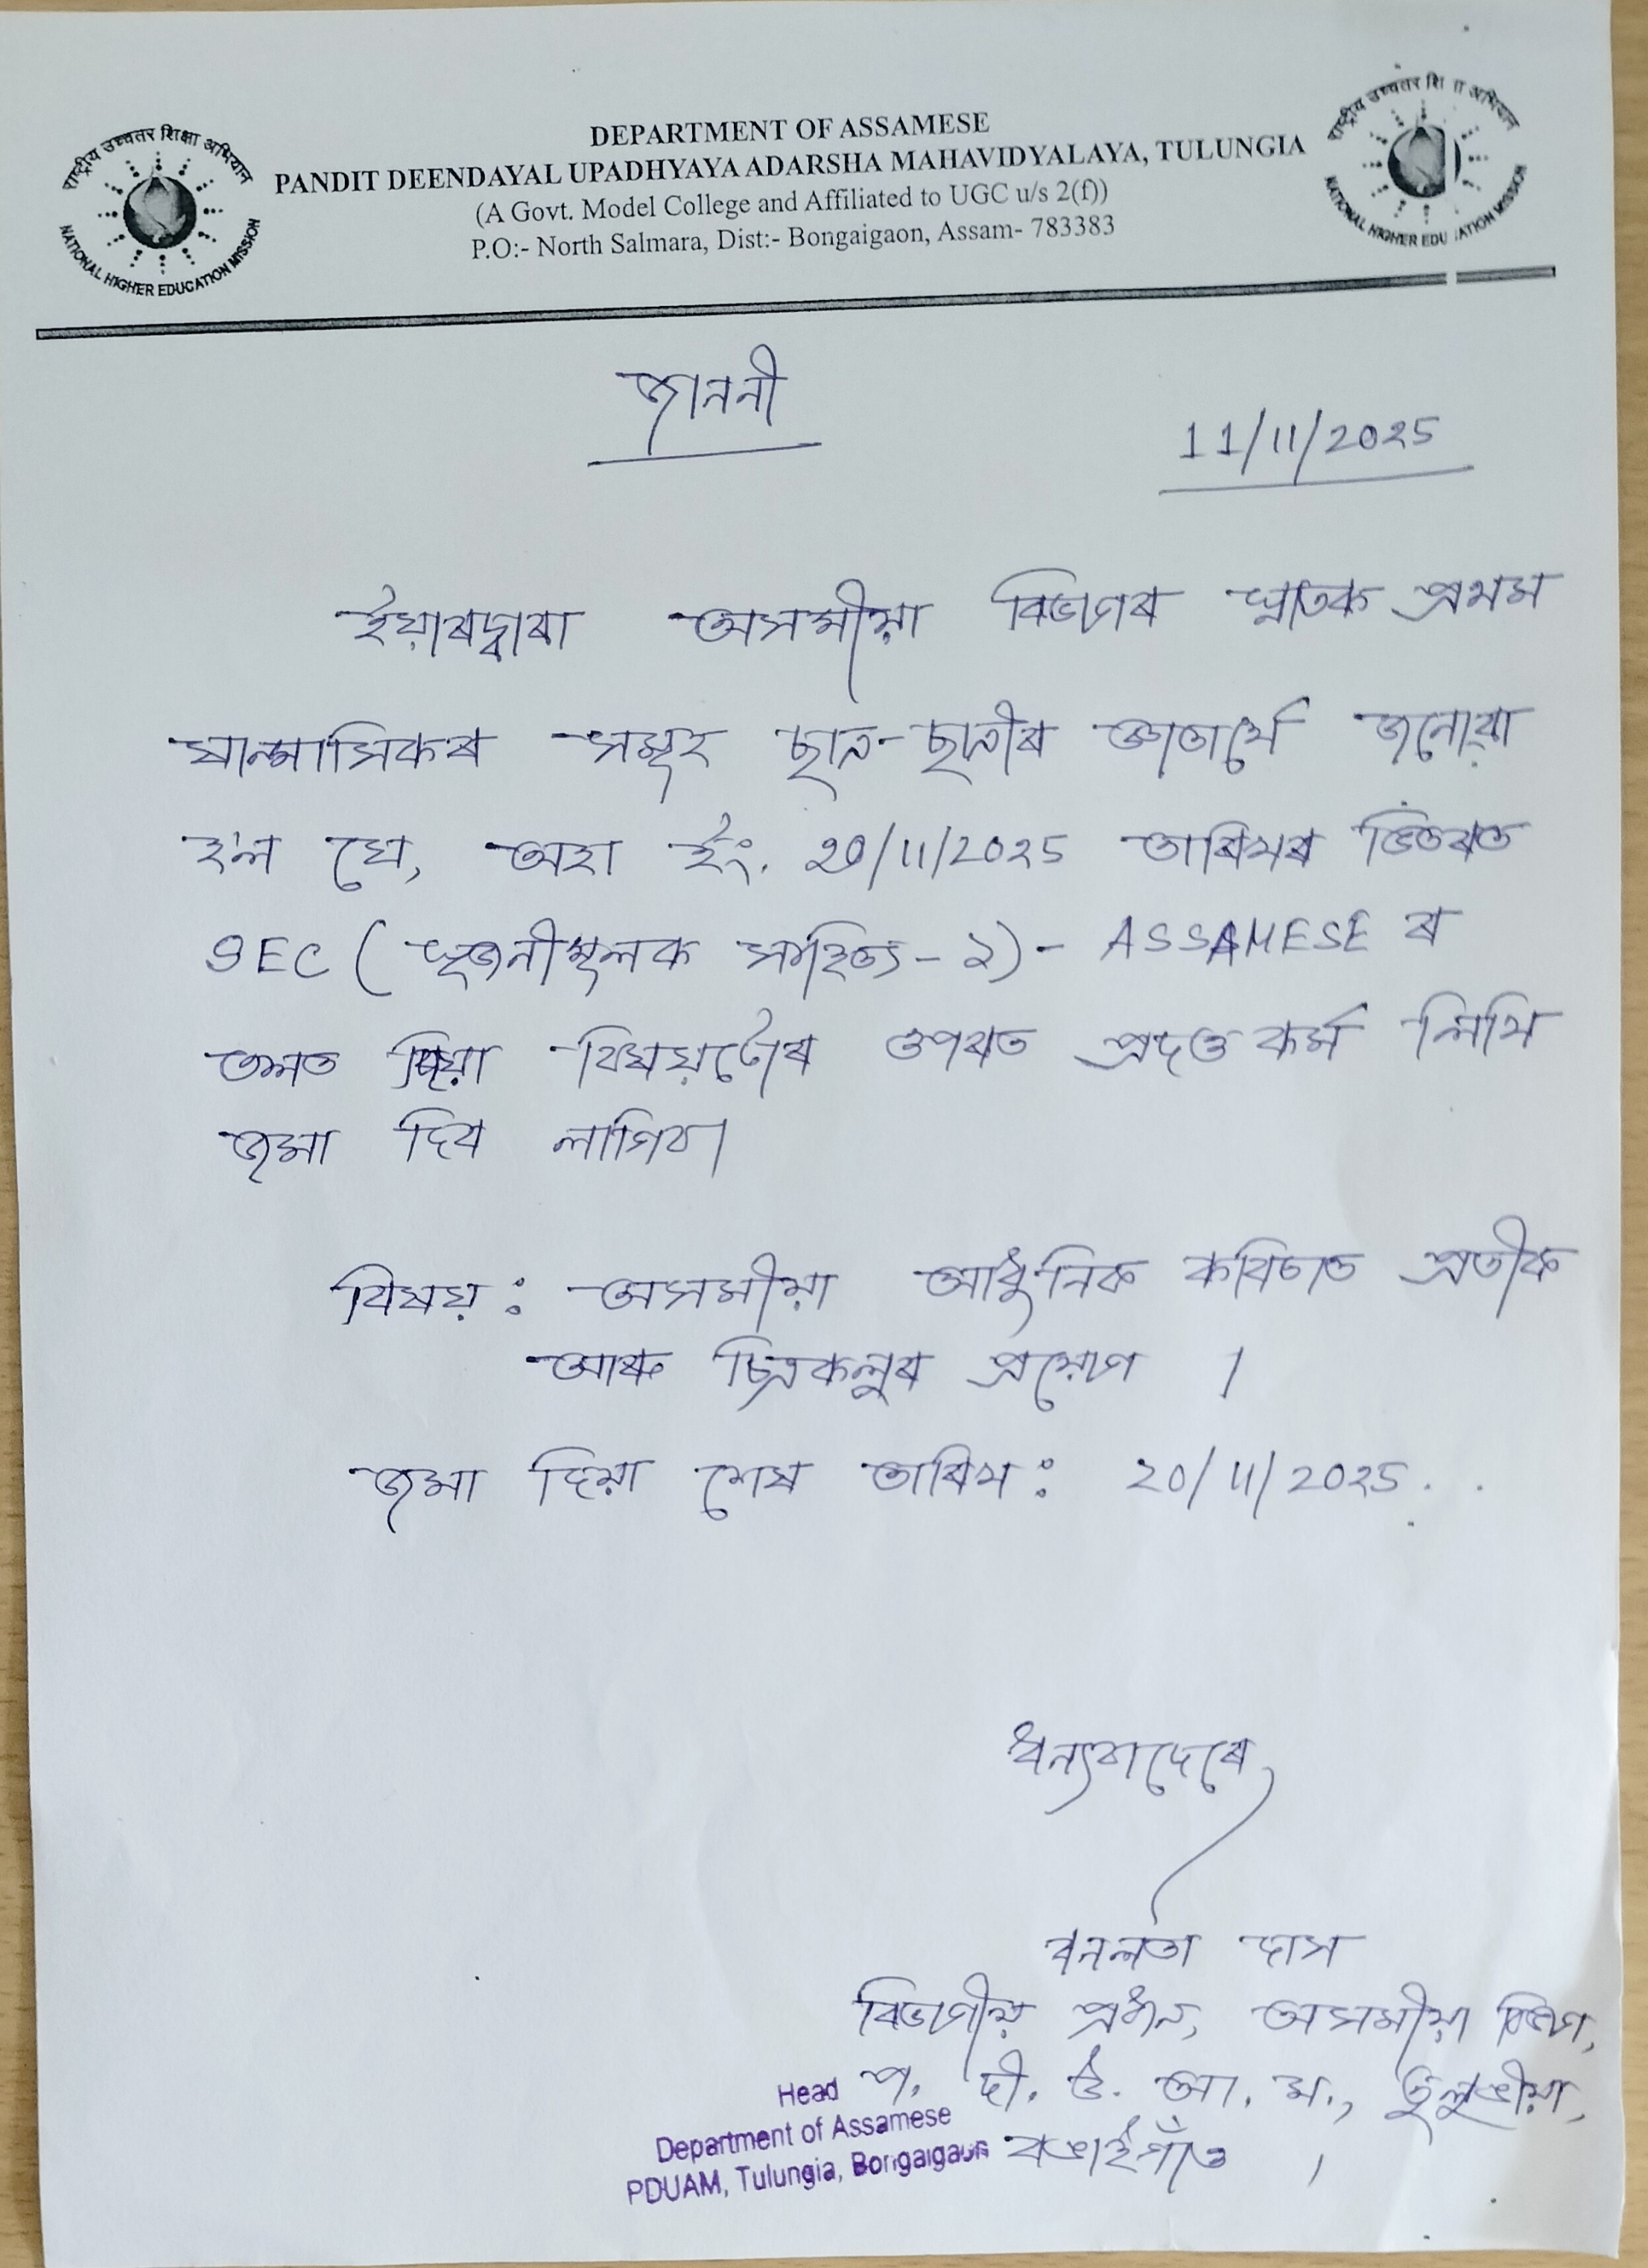 राष्ट्रीय उच्चतर शिक्षा अभियान
NATIONAL HIGHER EDUCATION MISSION
DEPARTMENT OF ASSAMESE
PANDIT DEENDAYAL UPADHYAYA ADARSHA MAHAVIDYALAYA, TULUNGIA
(A Govt. Model College and Affiliated to UGC u/s 2(f))
P.O:- North Salmara, Dist:- Bongaigaon, Assam- 783383
राष्ट्रीय उच्चतर शि ा अभियान
NATIONAL HIGHER EDU ATION MISSION
জাননী
11/11/2025
ইয়াৰদ্বাৰা অসমীয়া বিভাগৰ স্নাতক প্ৰথম
ষান্মাসিকৰ সমূহ ছাত্ৰ-ছাত্ৰীৰ জ্ঞাতাৰ্থে জনোৱা
হ'ল যে, অহা ইং. 20/11/2025 তাৰিখৰ ভিতৰত
SEC (সৃজনীমূলক সাহিত্য - ১) - ASSAMESE ৰ
তলত দিয়া বিষয়টোৰ ওপৰত প্ৰদত্ত কৰ্ম লিখি
জমা দিব লাগিব।
বিষয় : অসমীয়া আধুনিক কবিতাত প্ৰতীক
আৰু চিত্ৰকল্পৰ প্ৰয়োগ ।
জমা দিয়া শেষ তাৰিখ : 20/11/2025.
ধন্যবাদেৰে,
বনলতা দাস
বিভাগীয় প্ৰধান, অসমীয়া বিভাগ,
প. দী. উ. আ. ম., তুলুঙীয়া,
বঙাইগাঁও ।
Head
Department of Assamese
PDUAM, Tulungia, Bongaigaon